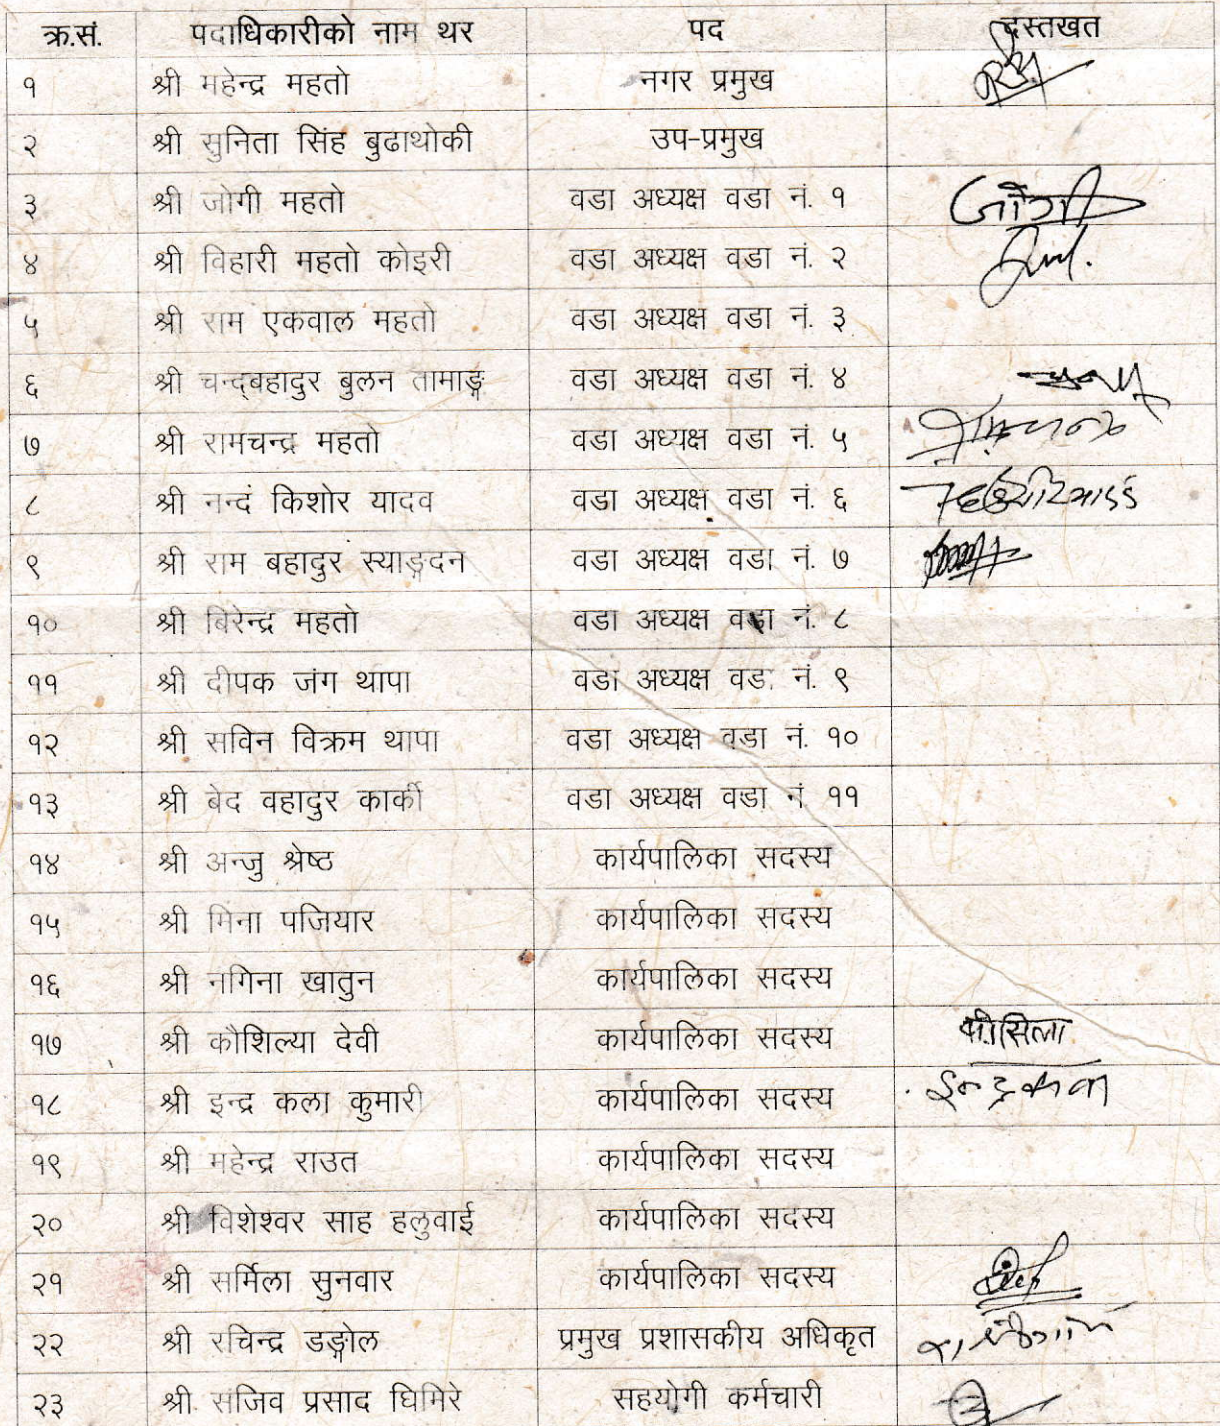 क्र.सं. पदाधिकारीको नाम थर पद दस्तखत
१ श्री महेन्द्र महतो नगर प्रमुख
२ श्री सुनिता सिंह बुढाथोकी उप-प्रमुख
३ श्री जोगी महतो वडा अध्यक्ष वडा नं. १ जोगी
४ श्री विहारी महतो कोइरी वडा अध्यक्ष वडा नं. २
५ श्री राम एकवाल महतो वडा अध्यक्ष वडा नं. ३
६ श्री चन्द्बहादुर बुलन तामाङ्ग वडा अध्यक्ष वडा नं. ४
७ श्री रामचन्द्र महतो वडा अध्यक्ष वडा नं. ५
८ श्री नन्दं किशोर यादव वडा अध्यक्ष वडा नं. ६
९ श्री राम बहादुर स्याङ्गदन वडा अध्यक्ष वडा नं. ७
१० श्री बिरेन्द्र महतो वडा अध्यक्ष वडा नं. ८
११ श्री दीपक जंग थापा वडा अध्यक्ष वडा नं. ९
१२ श्री सविन विक्रम थापा वडा अध्यक्ष वडा नं. १०
१३ श्री बेद वहादुर कार्की वडा अध्यक्ष वडा नं ११
१४ श्री अन्जु श्रेष्ठ कार्यपालिका सदस्य
१५ श्री मिना पजियार कार्यपालिका सदस्य
१६ श्री नगिना खातुन कार्यपालिका सदस्य
१७ श्री कौशिल्या देवी कार्यपालिका सदस्य कौसिला
१८ श्री इन्द्र कला कुमारी कार्यपालिका सदस्य इन्द्रकला
१९ श्री महेन्द्र राउत कार्यपालिका सदस्य
२० श्री विशेश्वर साह हलुवाई कार्यपालिका सदस्य
२१ श्री सर्मिला सुनवार कार्यपालिका सदस्य
२२ श्री रचिन्द्र डङ्गोल प्रमुख प्रशासकीय अधिकृत
२३ श्री सजिव प्रसाद घिमिरे सहयोगी कर्मचारी